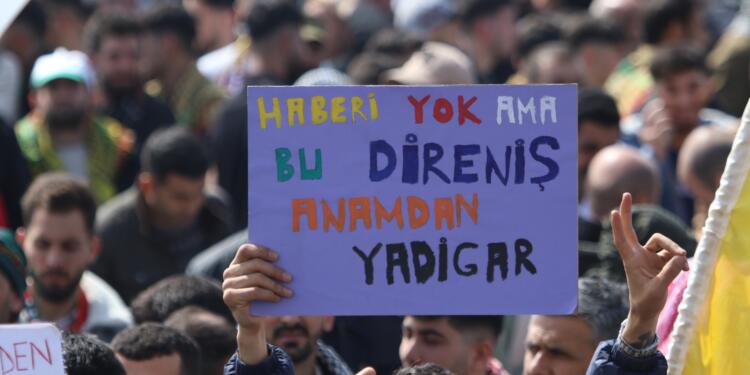 HABERİ YOK AMA
BU DİRENİŞ
ANAMDAN
YADİGAR
DEN